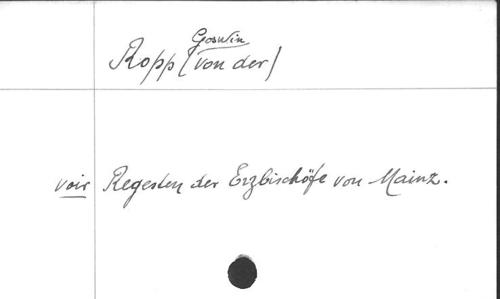 Ropp (Goswin von der)
voir Regesten der Erzbischöfe von Mainz.